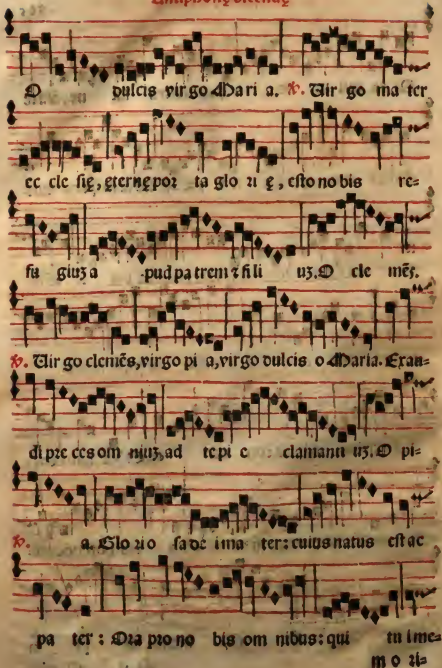 Antiphonę dicendę
O dulcis virgo Mari a. ℣. Uir go ma ter
ec cle się, ęternę por ta glo ri ę, esto no bis re-
fu giuȝ a pud pa trem ⁊ fi li uȝ. O cle mēs.
℣. Uir go clemēs, virgo pi a, virgo dulcis o Maria. Exau-
di pre ces om niuȝ, ad te pi e clamanti uȝ. O pi-
℣. a. Glo rio sa de i ma ter: cuius natus est ac
pa ter: Ora pro no bis om nibus: qui tu i me-
mo ri-